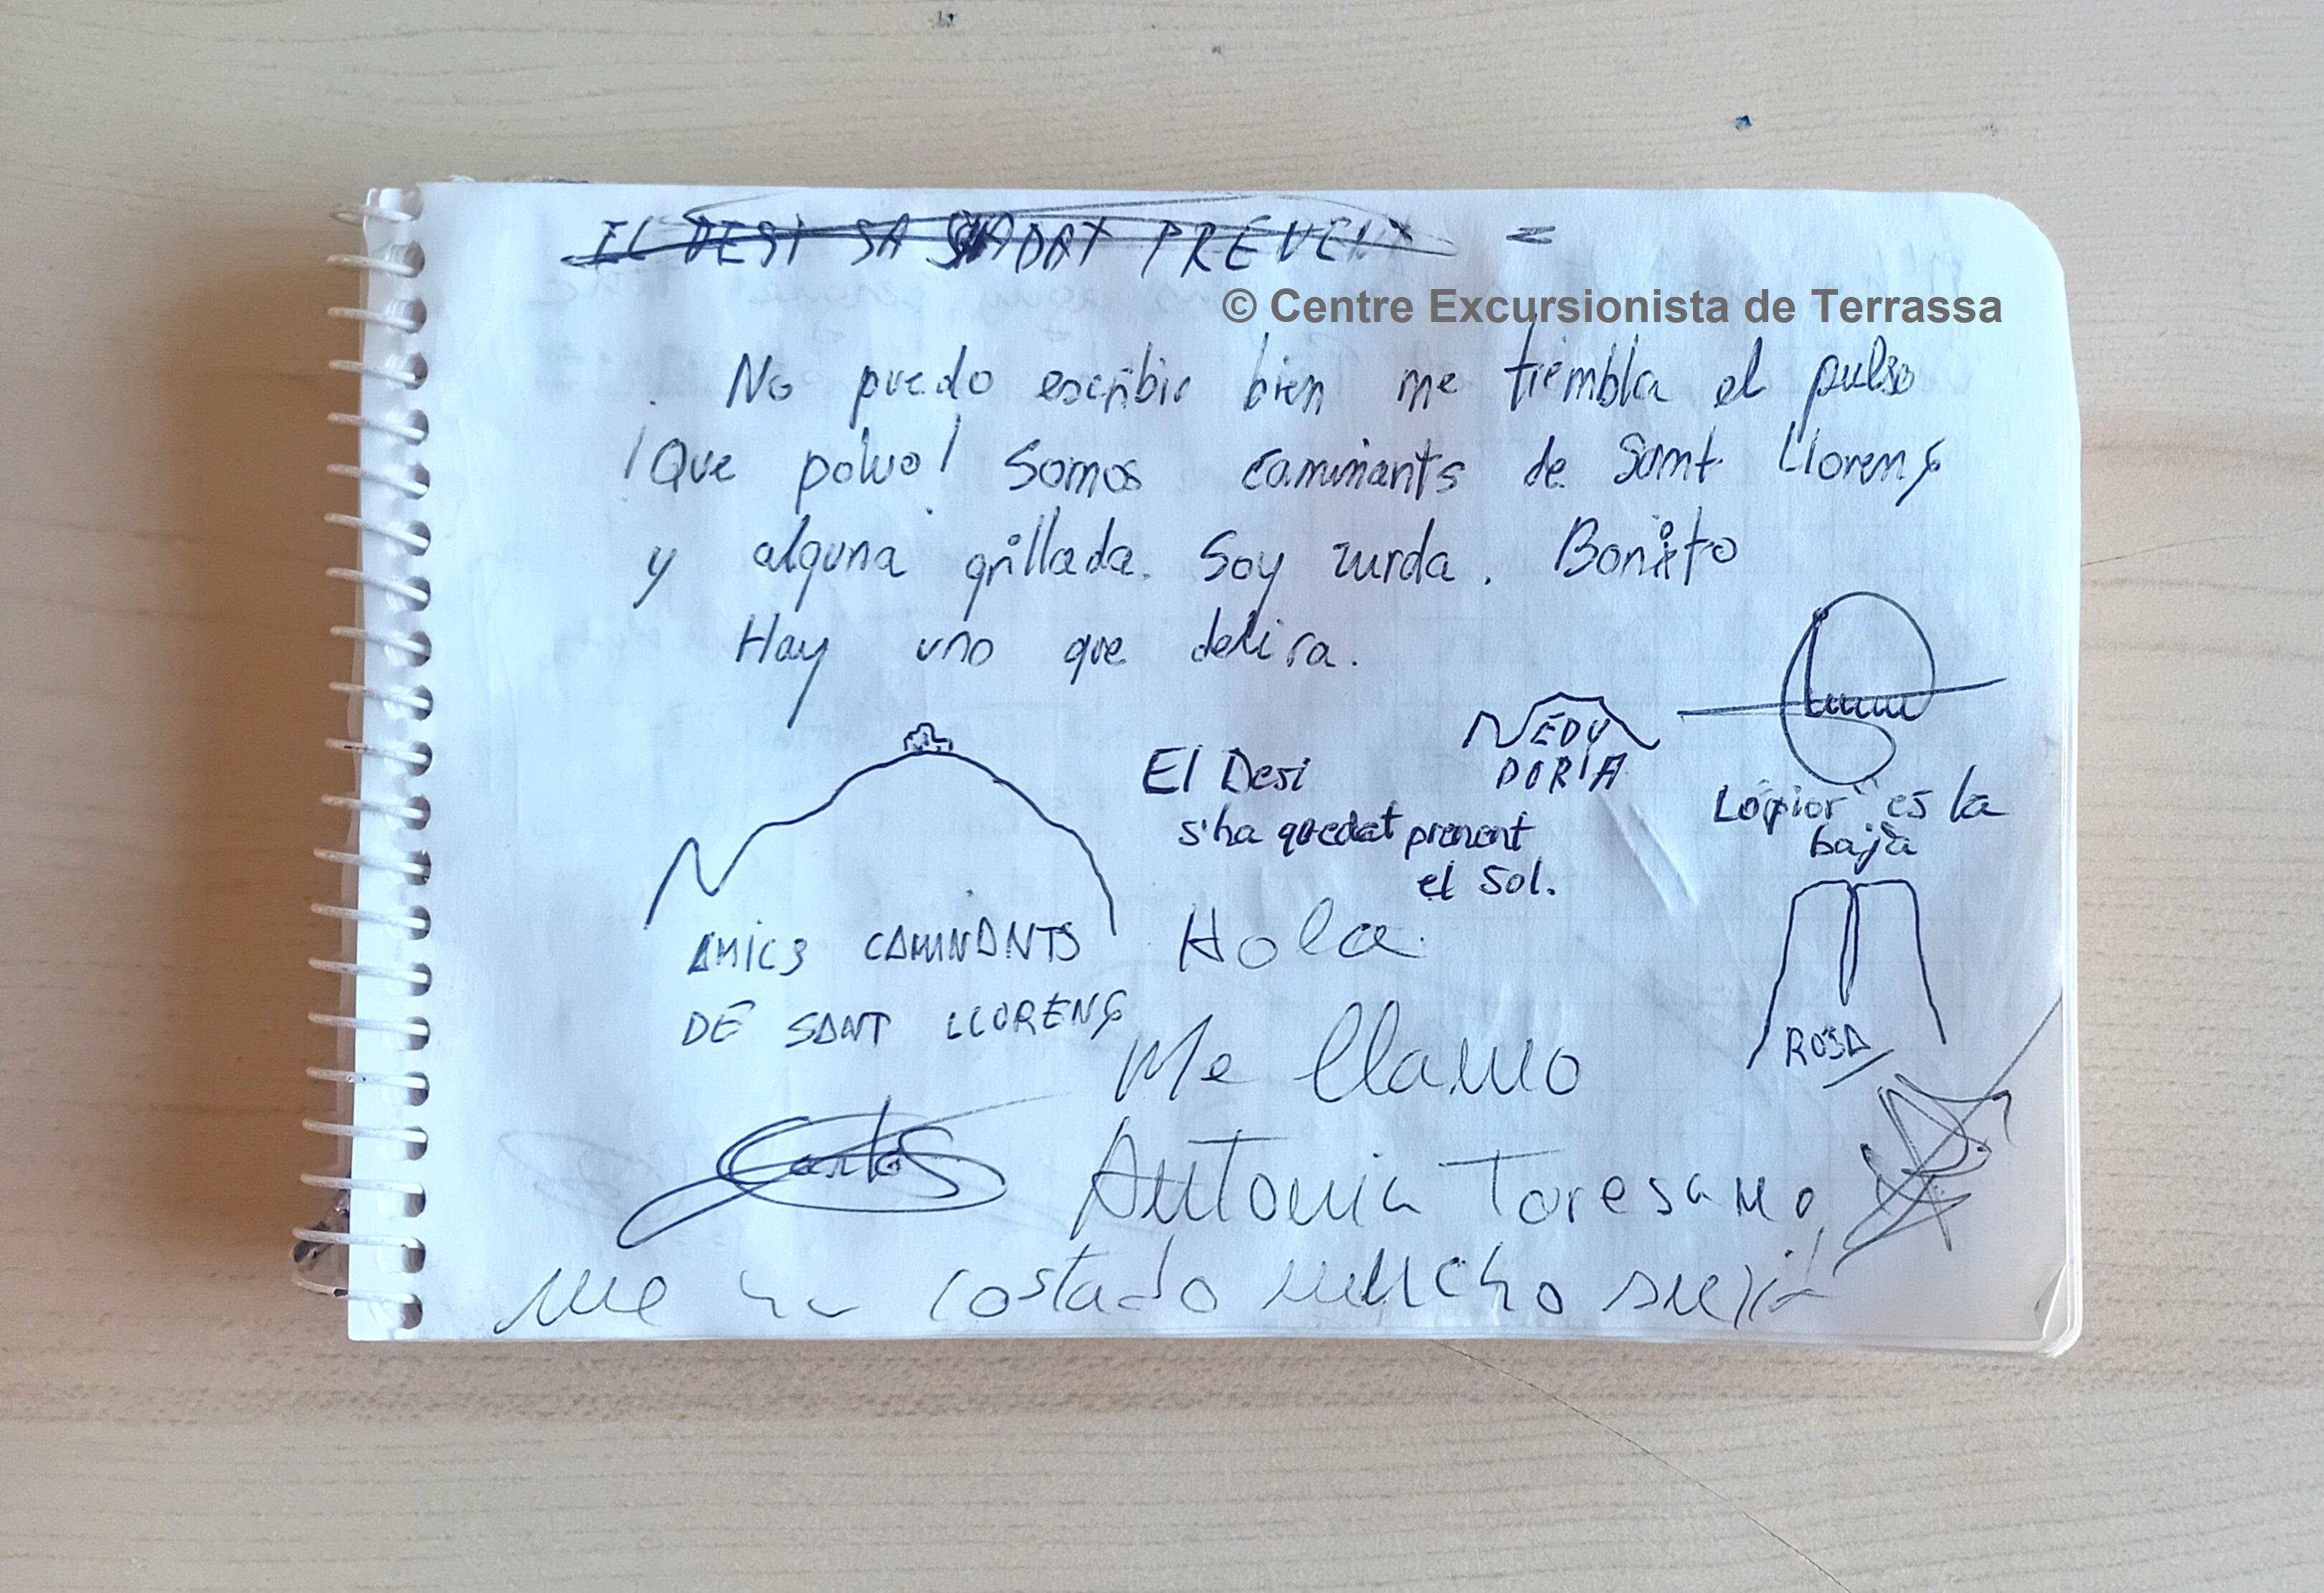 EL DESI SA DAT PREVENT =
© Centre Excursionista de Terrassa
No puedo escribir bien me tiembla el pulso
¡Que polvo! Somos caminants de Sant Llorenç
y alguna grillada. Soy zurda. Bonito
Hay uno que delira.
NEDU
DORIA
El Desi
s'ha quedat prenent
el Sol.
Lo pior es la
baja
AMICS CAMINANTS
DE SANT LLORENÇ
Hola
ROSA
Me llamo
Carlos
Antonia Toresano
me ha costado mucho suvir